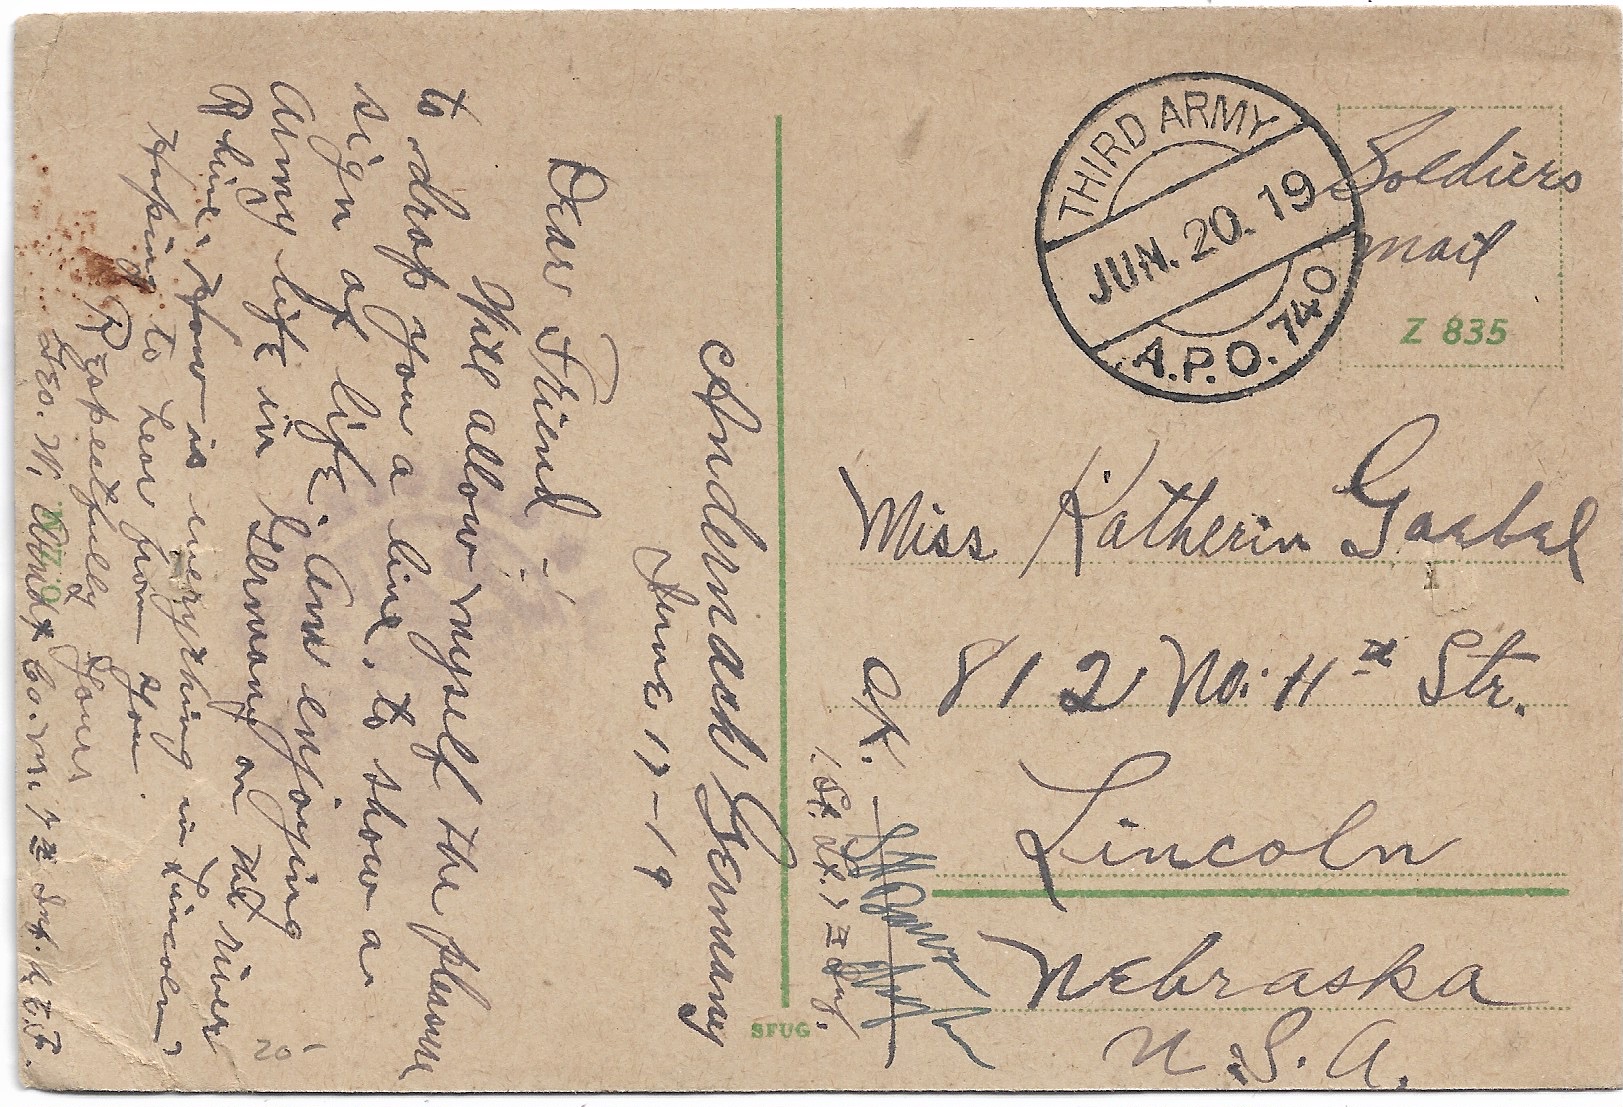 Andernach Germany
June 17-19
Dear Friend -
Will allow myself the pleasure
to drop you a line. to show a
sign of life. Am enjoying
Army life in Germany on the river
Rhine. How is everything in Lincoln,
Hoping to hear from you.
Respectfully Your
Geo. W. Co. M. 7th Inf. A.E.F.
THIRD ARMY
JUN. 20. 19
A.P.O. 740
Soldiers
mail
Z 835
Miss Katherin Gaebel
812 No. 11th Str.
Lincoln
Nebraska
U.S.A.
OK.
1 St. Lt. 7th Inf.
SFUG
20-